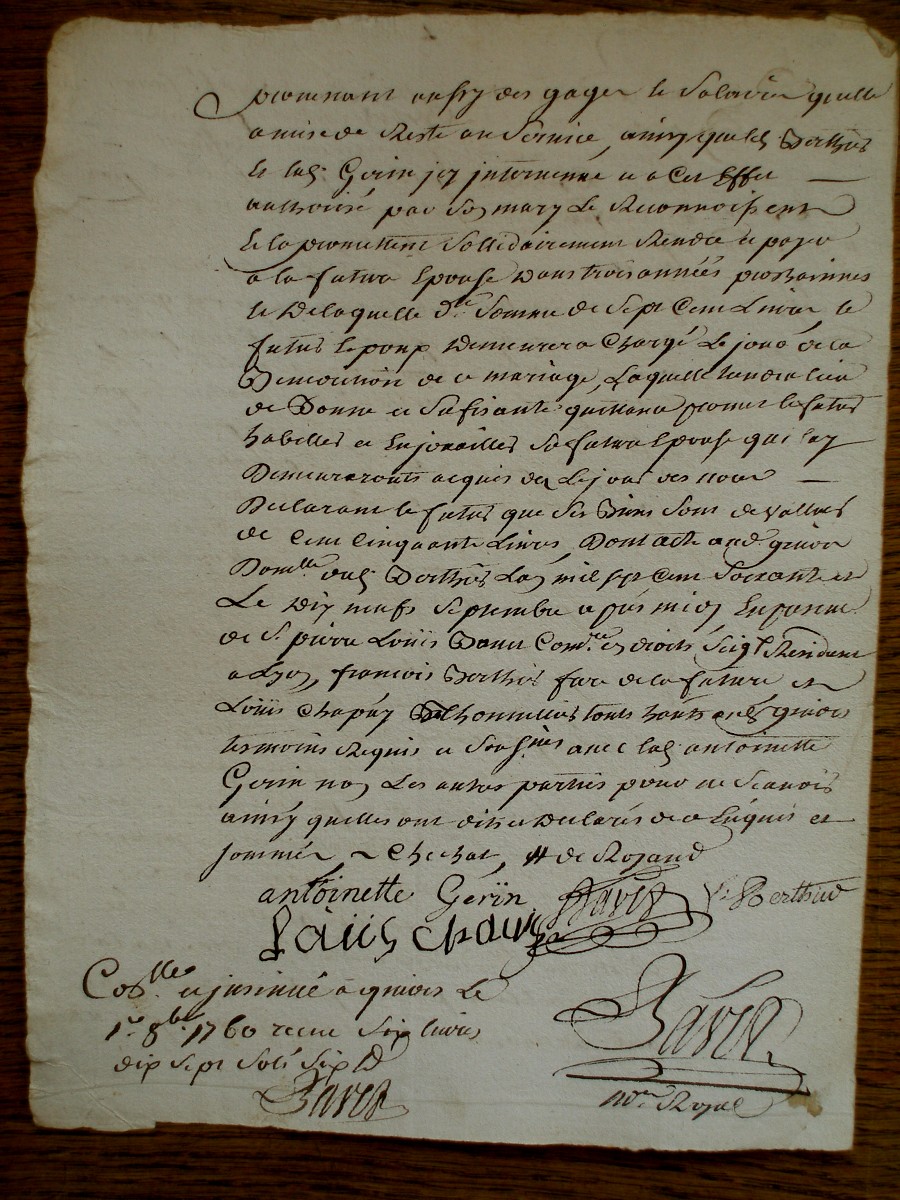 provenant aussy des gages et Salaires quelle
a mis de Reste au Service, ainsy que led. Berthier
et lad. Gerin jcy intervenue et a cet Effet
authorisé par Son mary Le Reconnoissent
et la promettent Sollidairement Rendre et payer
a la future Epouse Dans trois années prochainnes
et De laquelle de. Somme de Sept Cent Livres le
futur Epoux Demeurera Chargé Le jour de la
Benediction de ce mariage, Laquelle tiendra lieu
de Bonne et Sufisante quittance promet le futur
habiller et Enjoailler Sa future Epouse qui luy
Demeureronts acquis des Le jour des noces
Declarant le futur que Ses Biens Sont de Valleur
de Cent Cinquante Livres, Dont acte aud.
Domlle dud. Berthier L'an mil sept Cent Soixante et
Le Dix neuf Septembre apres midy En presence
de Sr. pierre Louïs
a Lyon, francois Berthier frere de la future et
Louïs Chapuy touts
temoins Requis et Soussignés avec lad. antoinette
Gerin non Les autres parties pour ne Scavoir
ainsy quelles ont dit et Declarés de ce Enquis et
Sommés de Royaud
antoinette Gerïn
Loüis Chapuis
Collé. et jnsinué a le
1er 8bre 1760 receu Six livres
dix Sept Sols Six D
nore Royal